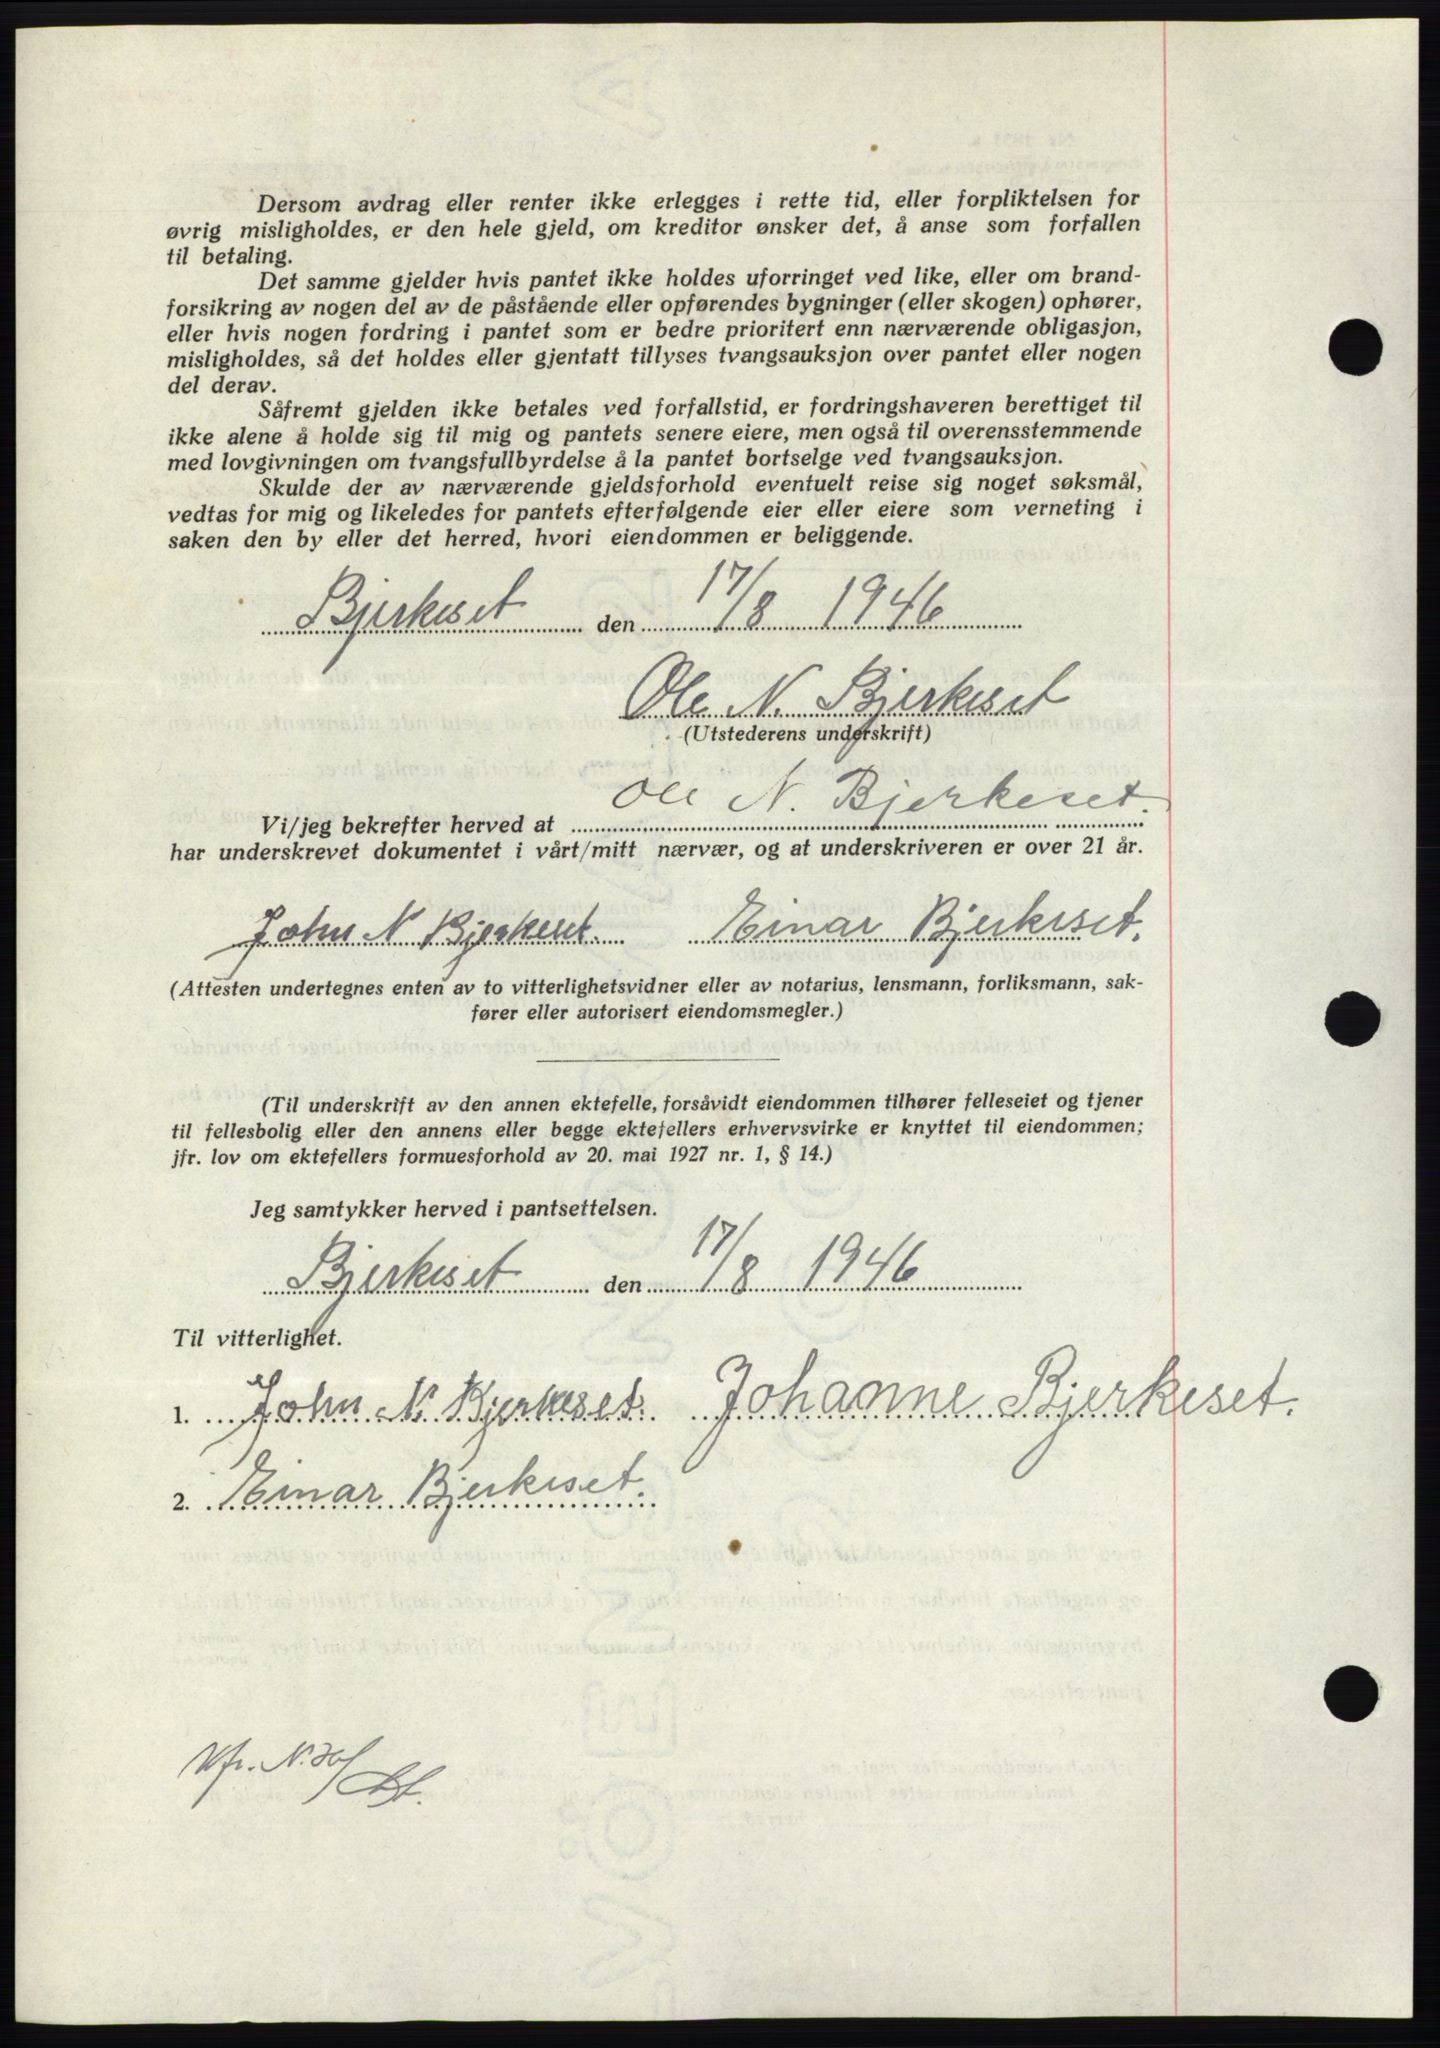 Dersom avdrag eller renter ikke erlegges i rette tid, eller forpliktelsen for
øvrig misligholdes, er den hele gjeld, om kreditor ønsker det, å anse som forfallen
til betaling.
Det samme gjelder hvis pantet ikke holdes uforringet ved like, eller om brand-
forsikring av nogen del av de påstående eller opførendes bygninger (eller skogen) ophører,
eller hvis nogen fordring i pantet som er bedre prioritert enn nærværende obligasjon,
misligholdes, så det holdes eller gjentatt tillyses tvangsauksjon over pantet eller nogen
del derav.
Såfremt gjelden ikke betales ved forfallstid, er fordringshaveren berettiget til
ikke alene å holde sig til mig og pantets senere eiere, men også til overensstemmende
med lovgivningen om tvangsfullbyrdelse å la pantet bortselge ved tvangsauksjon.
Skulde der av nærværende gjeldsforhold eventuelt reise sig noget søksmål,
vedtas for mig og likeledes for pantets efterfølgende eier eller eiere som verneting i
saken den by eller det herred, hvori eiendommen er beliggende.
Bjerkeset den 17/8 1946
Ole N. Bjerkeset
(Utstederens underskrift)
Ole N. Bjerkeset.
Vi/jeg bekrefter herved at
har underskrevet dokumentet i vårt/mitt nærvær, og at underskriveren er over 21 år.
John N Bjerkeset. Einar Bjerkeset.
(Attesten undertegnes enten av to vitterlighetsvidner eller av notarius, lensmann, forliksmann, sak-
fører eller autorisert eiendomsmegler.)
(Til underskrift av den annen ektefelle, forsåvidt eiendommen tilhører felleseiet og tjener
til fellesbolig eller den annens eller begge ektefellers erhvervsvirke er knyttet til eiendommen;
jfr. lov om ektefellers formuesforhold av 20. mai 1927 nr. 1, § 14.)
Jeg samtykker herved i pantsettelsen.
Bjerkeset den 17/8 1946
Til vitterlighet.
1. John N. Bjerkeset. Johanne Bjerkeset.
2. Einar Bjerkeset.